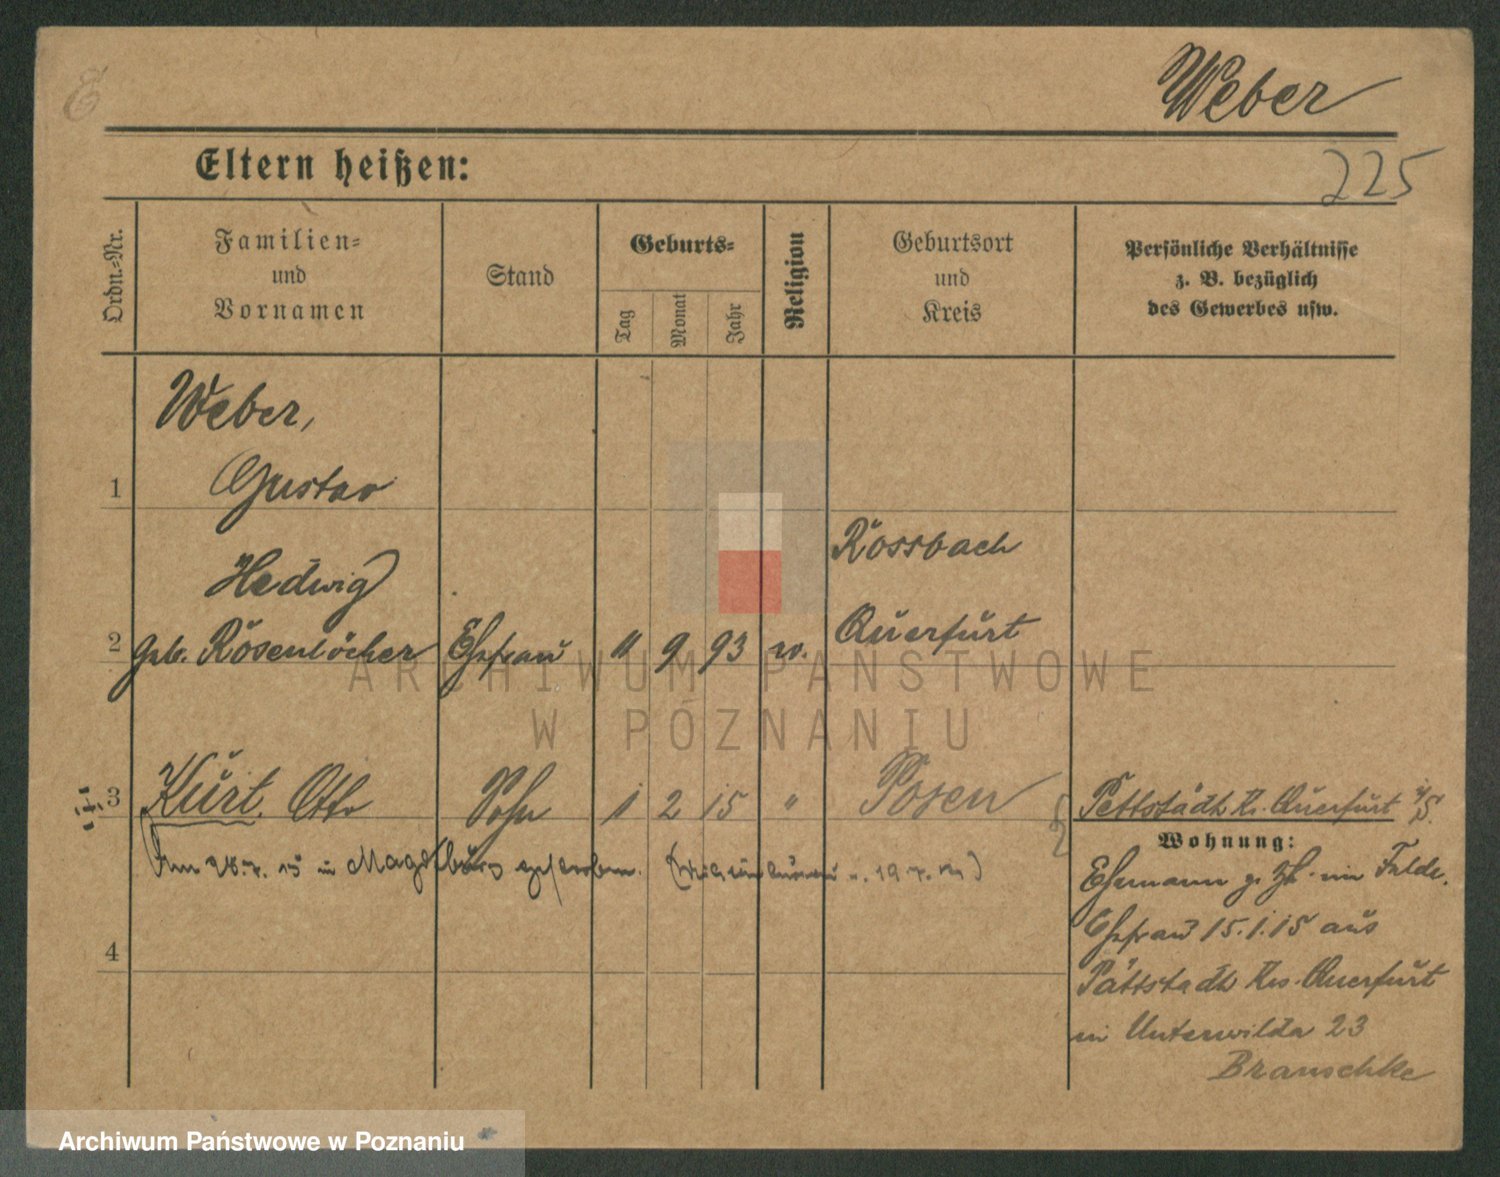 E
Weber
Eltern heißen:
225
Ordn.-Nr.
Familien-
und
Vornamen
Stand
Geburts-
Tag
Monat
Jahr
Religion
Geburtsort
und
Kreis
Persönliche Verhältnisse
z. B. bezüglich
des Gewerbes usw.
Weber,
1 Gustav
Hedwig Rossbach
2 geb. Rosenlöcher Ehefrau 11 9 93 Querfurt
ARCHIWUM PAŃSTWOWE
W POZNANIU
3 Kurt Otto Sohn 1 2 15 " Posen Pettstädt Kr. Querfurt
Wohnung:
Am 28.7. 15 in Magdeburg gestorben.
Ehemann z. Zt. im Felde.
Ehefrau 15.1.15 aus
4
Pättstädt Krs. Querfurt
in Unterwilda 23
Brauschke
Archiwum Państwowe w Poznaniu